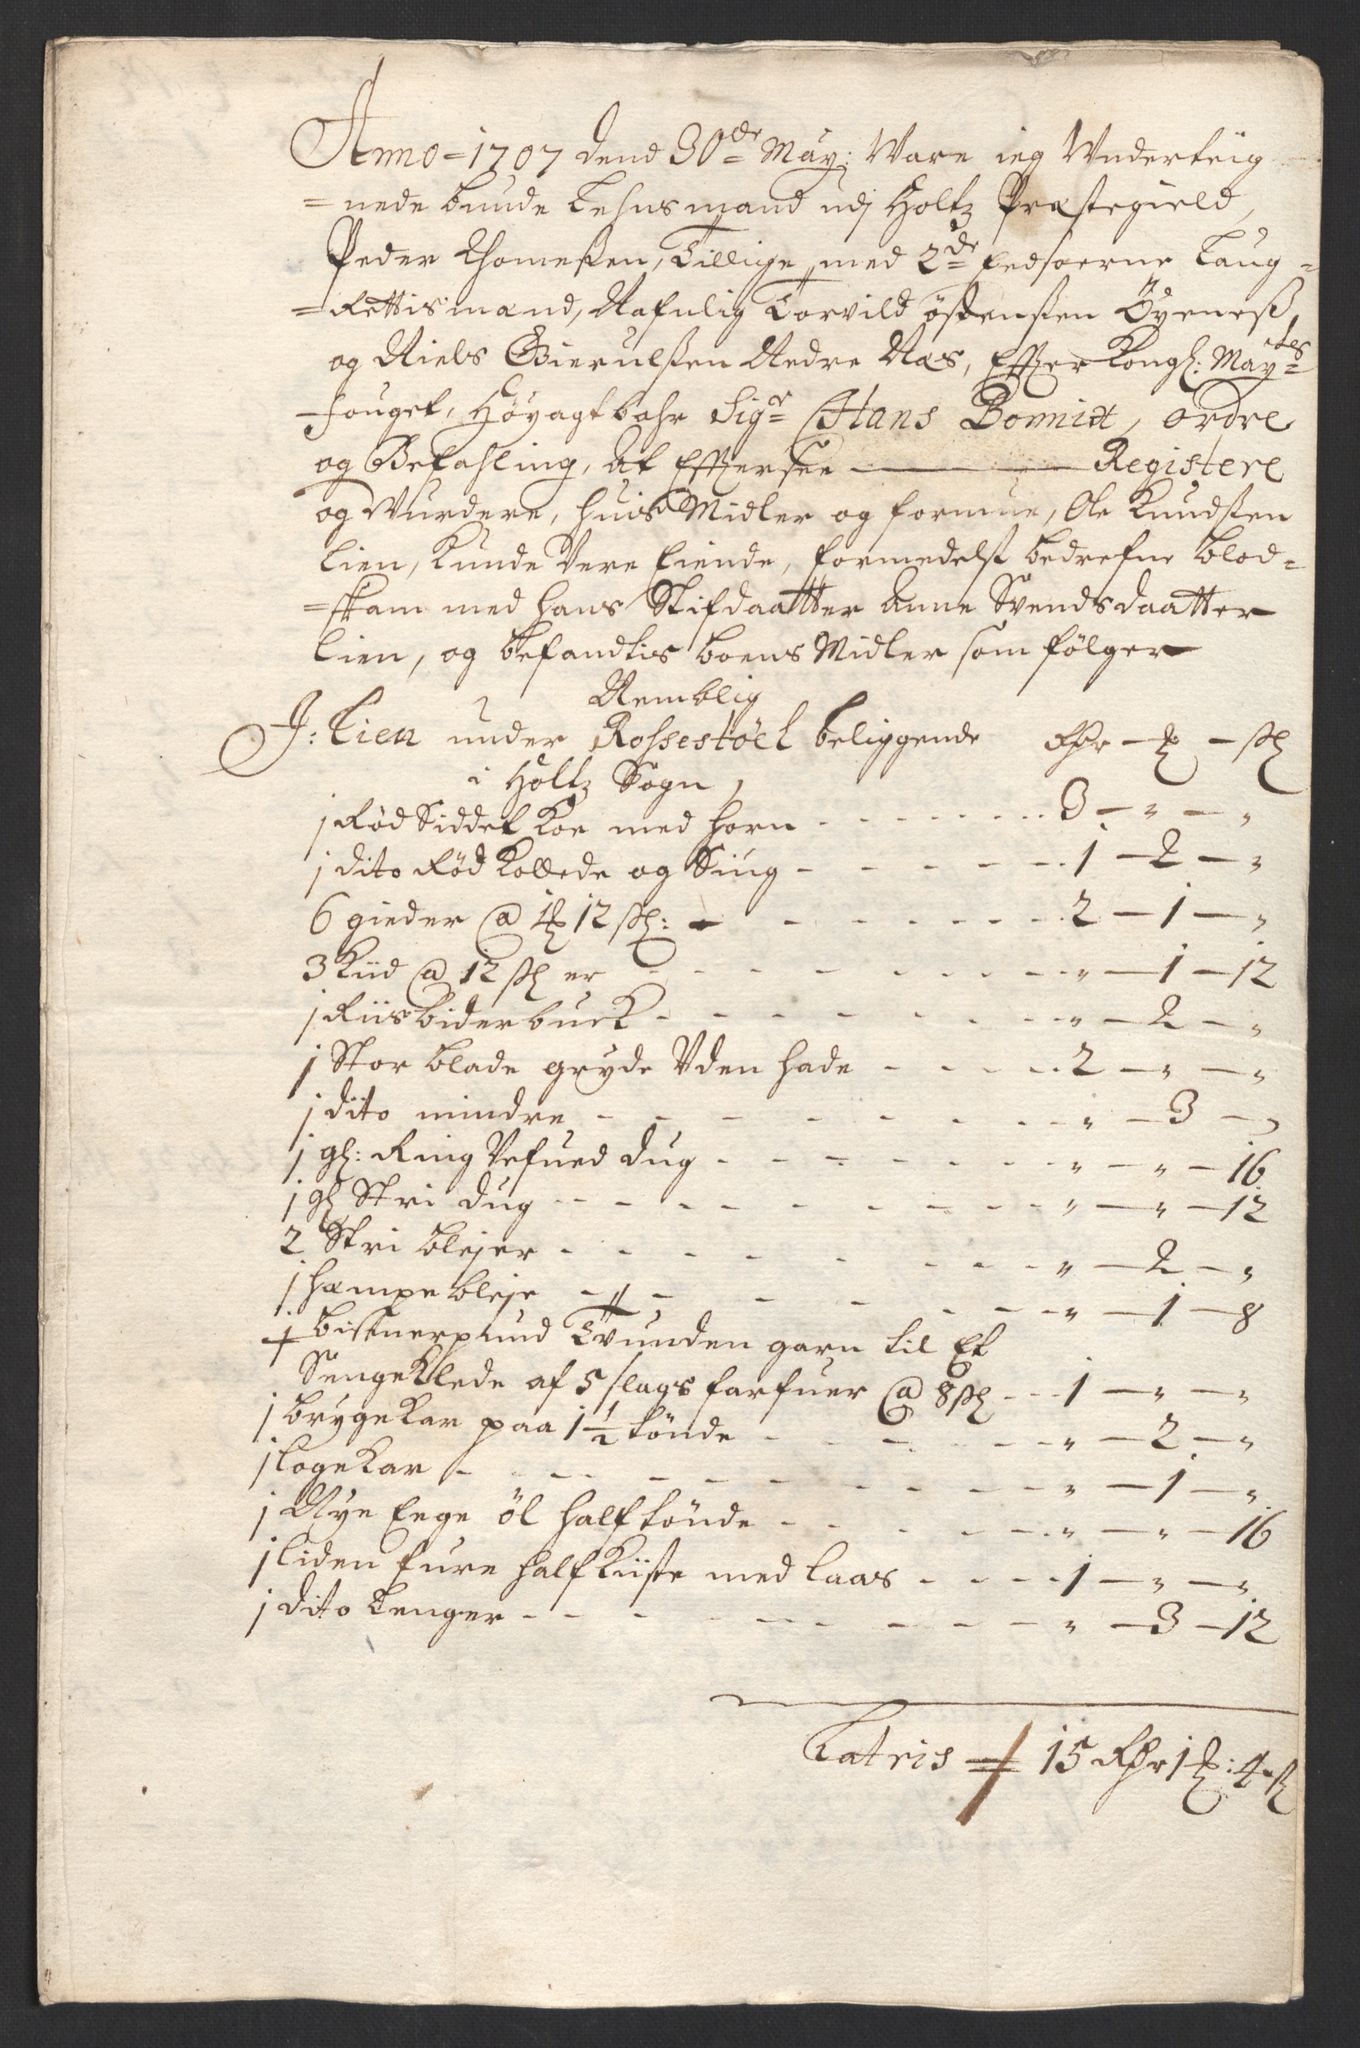 Anno = 1707 dend 30de May: Ware ieg Vnderteig
= nede bunde Lehnsmand udj Holtz Præstegield,
Peder Thomeßen, Tillige med 2de Eedsorne Laug =
= Rettismænd, Nafnlig Torvild Østensten Öyeneß,
og Niels Gierulsten Nedre Næs, Effter Kongl: Maytes
fouget, Høyagtbahr Sigr Hans Bomict, ordre
og Befahling, At Effersee ——— Registere
og Vurdere, huis Midler og formue, Ole Knudsten
Lien, Kunde Vere Eiende, formedelst bedrefne blod =
= skam med hans Stifdaatter Anne Svendsdaatter
Lien, og befandtis boens Midler som følger
Nemblig
J: Lien under Rossestöel beliggende Rdr — ₰ — ſß
i Holtz Sogn,
1 Rød Siddet Koe med horn - - - 3 — " — "
1 dito Rød Kollede og Siug - - - 1 — 2 — "
6 gieder @ 1₰ 12 ſß: - - - 2 — 1 — "
3 Kiid @ 12 ſß er - - - " — 1 — 12
1 Riisbiderbuck - - - " — 2 — "
1 Stor blade gryde Vden hade - - - 2 — " — "
1 dito mindre - - - " — 3 — "
1 gl: Ring Vefued dug - - - " — " — 16
1 gl Stri dug - - - " — " — 12
2 Stri blejer - - - " — 2 — "
1 hampe bleje - - - " — 1 — 8
1 bismerpund Tvunden garn til Et
Sengeklede af 5 slags farfuer @ 8 ſß - - 1 — " — "
1 brygekar paa 1 1/2 tönde - - - " — 2 — "
1 logekar - - - " — 1 — "
1 Nye Eege öl halftönde - - - " — " — 16
1 liden fure halfkiiste med laas - - - 1 — " — "
1 dito Lenger - - - " — 3 — 12
Latris = 15 Rdr 1 ₰: 4 ſß